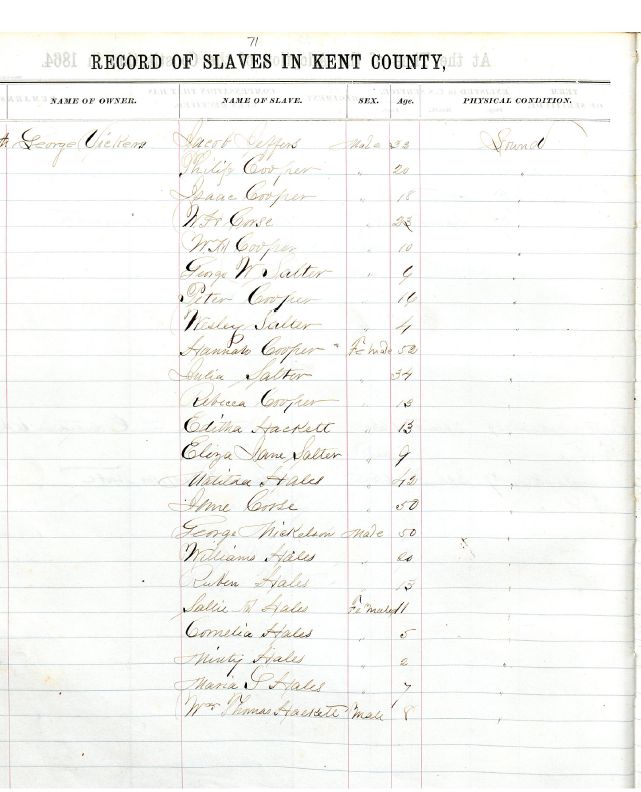 71
RECORD OF SLAVES IN KENT COUNTY,
NAME OF OWNER. NAME OF SLAVE. SEX. Age. PHYSICAL CONDITION.
George Vickers Jacob Jeffers Male 32 Sound
Philip Cooper " 20 "
Isaac Cooper " 18 "
Wm Corse " 23 "
Wm H Cooper " 10 "
George W Salter " 9 "
Peter Cooper " "
Wesley Salter " 4 "
Hannah Cooper Female 52 "
Julia Salter " 34 "
Rebecca Cooper " 13 "
Editha Hackett " 13 "
Eliza Jane Salter " 9 "
Matilda Hales " 42 "
Corse " 50 "
George Nickelson Male 50 "
Williams Hales " 20 "
Ruben Hales " 13 "
Sallie A Hales Female 11 "
Cornelia Hales " 5 "
Minty Hales " 2 "
Maria Hales " 7 "
Wm Thomas Hackett Male 8 "